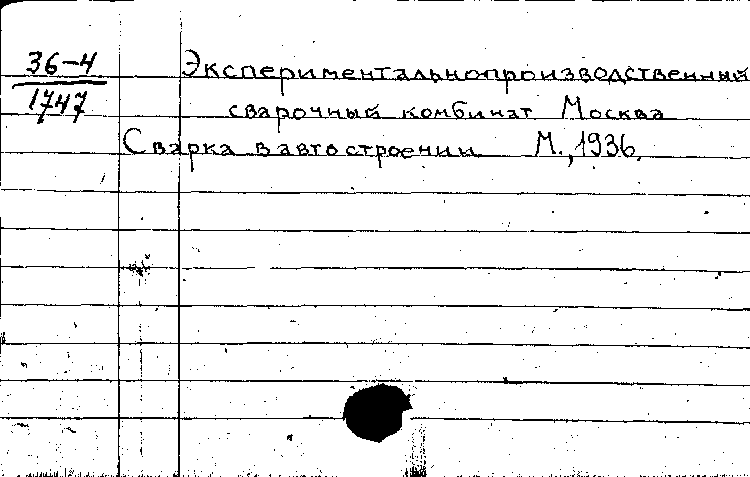 36-4
1747
Экспериментально-производственный
сварочный комбинат Москва
Сварка в автостроении М., 1936.